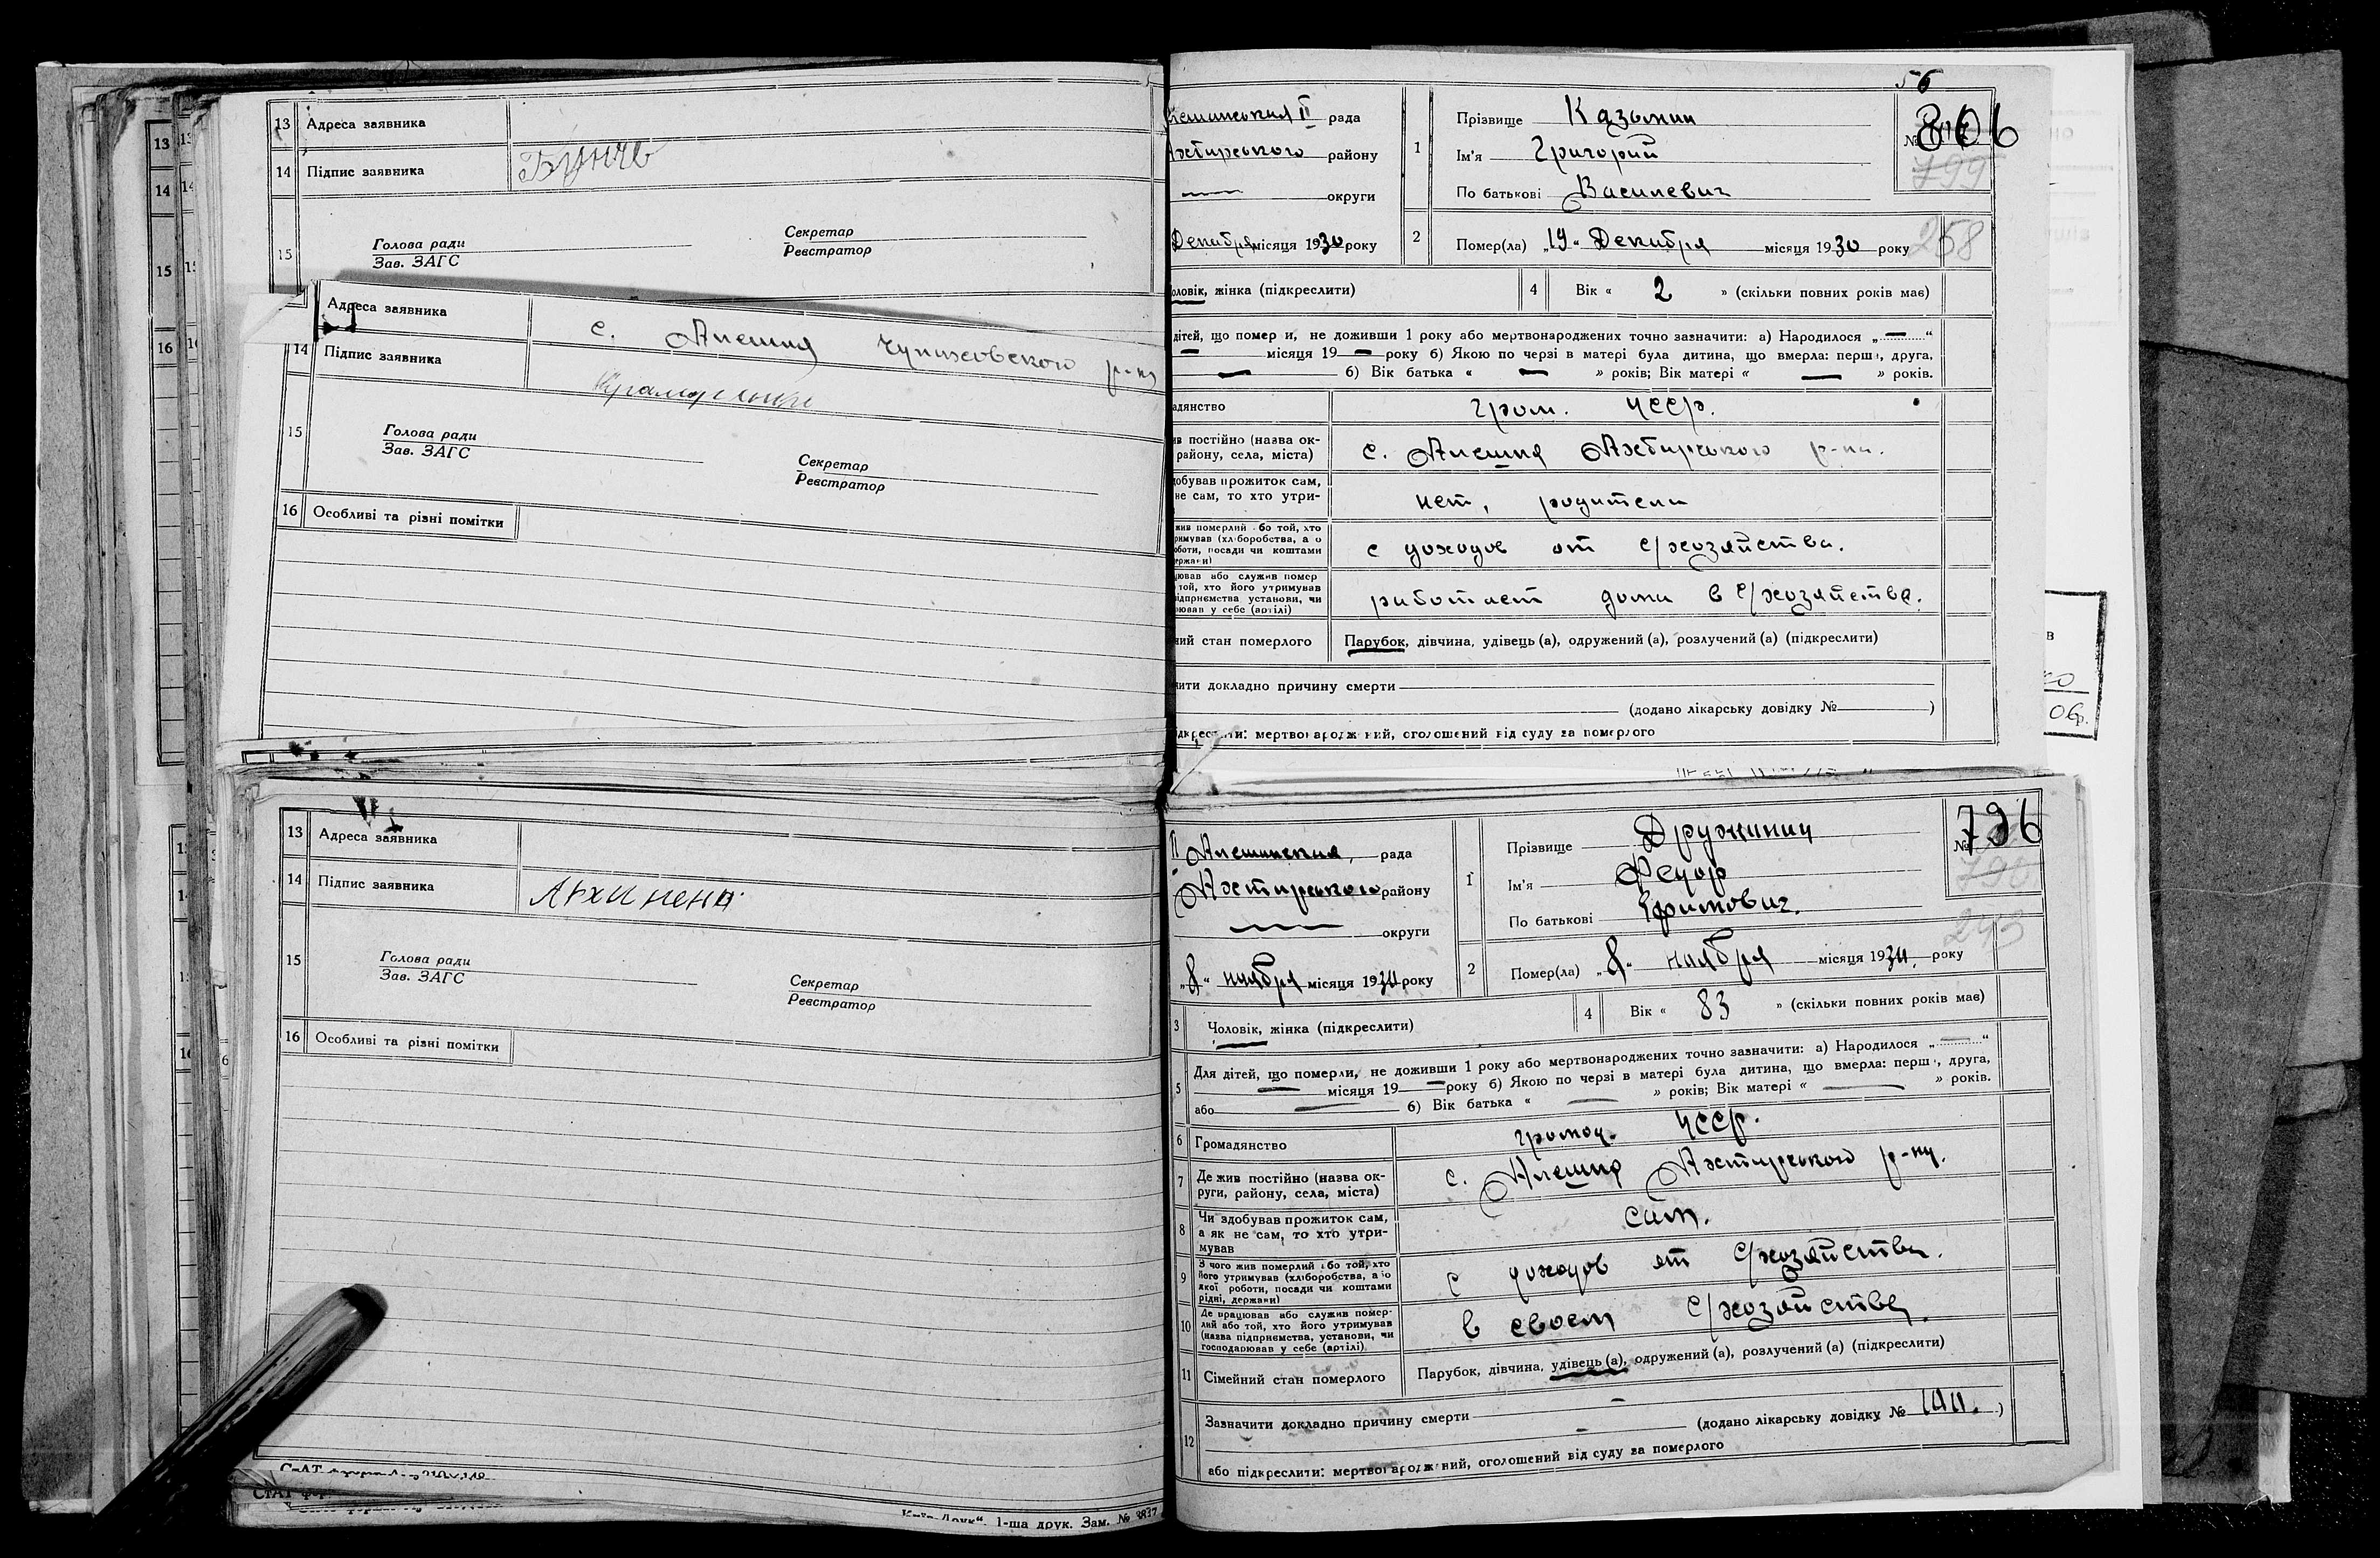 13 Адреса заявника
14 Підпис заявника
15 Голова ради
Зав. ЗАГС
Секретар
Реєстратор
Адреса заявника с. Алешня Чупаховского р-на
14 Підпис заявника
15 Голова ради
Зав. ЗАГС
Секретар
Реєстратор
16 Особливі та різні помітки
13 Адреса заявника
14 Підпис заявника
15 Голова ради
Зав. ЗАГС
Секретар
Реєстратор
16 Особливі та різні помітки
1-ша друк. Зам. № 3837
56
рада
району
округи
Декабря місяця 1930 року
1 Прізвище Казьмин
Ім'я Григорий
По батькові Василевич
№ 806
799
2 Помер(ла) „19“ Декабря місяця 1930 року
258
чоловік, жінка (підкреслити)
4 Вік « 2 » (скільки повних років має)
дітей, що помер и, не доживши 1 року або мертвонароджених точно зазначити: а) Народилося „ “
місяця 19 року б) Якою по черзі в матері була дитина, що вмерла: перша, друга,
б) Вік батька « » років; Вік матері « » років.
адянство гром. УССР.
ив постійно (назва ок-
району, села, міста) с. Алешня Ахтирського р-на.
добував прожиток сам,
не сам, то хто утри- нет, родители
жив померлий або той, хто
римував (хліборобства, а о
оботи, посади чи коштами
ержави) с доходов от с/хозяйства.
цював або служив помер
той, хто його утримував
ідприємства установи, чи
рював у себе (артілі) работает дома в с/хозяйстве.
ний стан померлого Парубок, дівчина, удівець (а), одружений (а), розлучений (а) (підкреслити)
чити докладно причину смерти
(додано лікарську довідку № )
ідкреслити: мертвонароджений, оголошений від суду за померлого
II Алешинская, рада
Ахтирського району
округи
„8“ ноября місяця 1930 року
1 Прізвище Дружинин
Ім'я Федор
По батькові Ефимович.
№ 796
790
245
2 Помер(ла) „8“ ноября місяця 1930 року
3 Чоловік, жінка (підкреслити)
4 Вік « 83 » (скільки повних років має)
5 Для дітей, що померли, не доживши 1 року або мертвонароджених точно зазначити: а) Народилося „ “
місяця 19 року б) Якою по черзі в матері була дитина, що вмерла: перша, друга,
або б) Вік батька « » років; Вік матері « » років.
6 Громадянство громад. УССР.
7 Де жив постійно (назва ок-
руги, району, села, міста) с. Алешня Ахтирського р-ну.
8 Чи здобував прожиток сам,
а як не сам, то хто утри-
мував сам.
9 З чого жив померлий або той, хто
його утримував (хліборобства, або
якої роботи, посади чи коштами
рідні, держави) с доходов от с/хозяйства.
10 Де працював або служив помер-
лий або той, хто його утримував
(назва підприємства, установи, чи
господарював у себе (артілі) в своем с/хозяйстве
11 Сімейний стан померлого Парубок, дівчина, удівець (а), одружений (а), розлучений (а) (підкреслити)
12 Зазначити докладно причину смерти
(додано лікарську довідку № )
або підкреслити: мертвонароджений, оголошений від суду за померлого